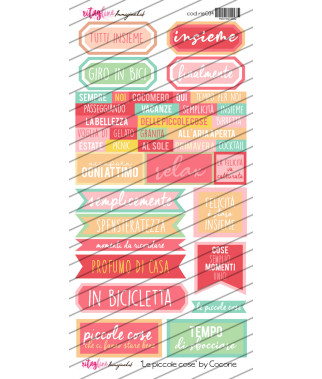 ritagliamo
cod.ne034
TUTTI INSIEME
insieme
GIRO IN BICI
finalmente
SEMPRE NOI COCOMERO QUI TEMPO PER NOI
PASSEGGIANDO VACANZE SEMPLICITÀ INSIEME
LA BELLEZZA DELLE PICCOLE COSE BIMBI
VOGLIA DI GELATO GRANDA ALL'ARIA APERTA
ESTATE PICNIC AL SOLE PRIMAVERA COCKTAIL
OGNI ATTIMO
relax
LA FELICITÀ
VA
semplicemente
SPENSIERATEZZA
momenti da ricordare
PROFUMO DI CASA
FELICITÀ
è stare
INSIEME
COSE
SEMPLICI
MOMENTI
UNICI
IN BICICLETTA
le piccole cose
piccole cose
che ci fanno stare bene
TEMPO
di sbocciare
"Le piccole cose" by Cocone